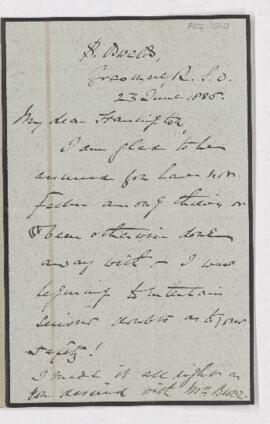 Acc. 1010
St. Oswalds,
Grasmere R.S.O.
23 June 1885.
My dear
I am glad to be
assured you have not
fallen among thieves or
been otherwise done
away with – I was
beginning to entertain
serious doubts as to your
safety!
I made it all right as
you desired with Mrs